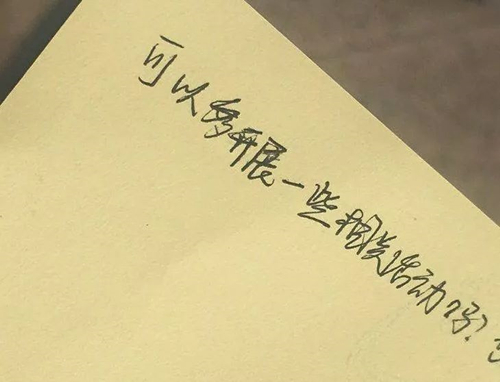 可以多开展一些相关活动吗?